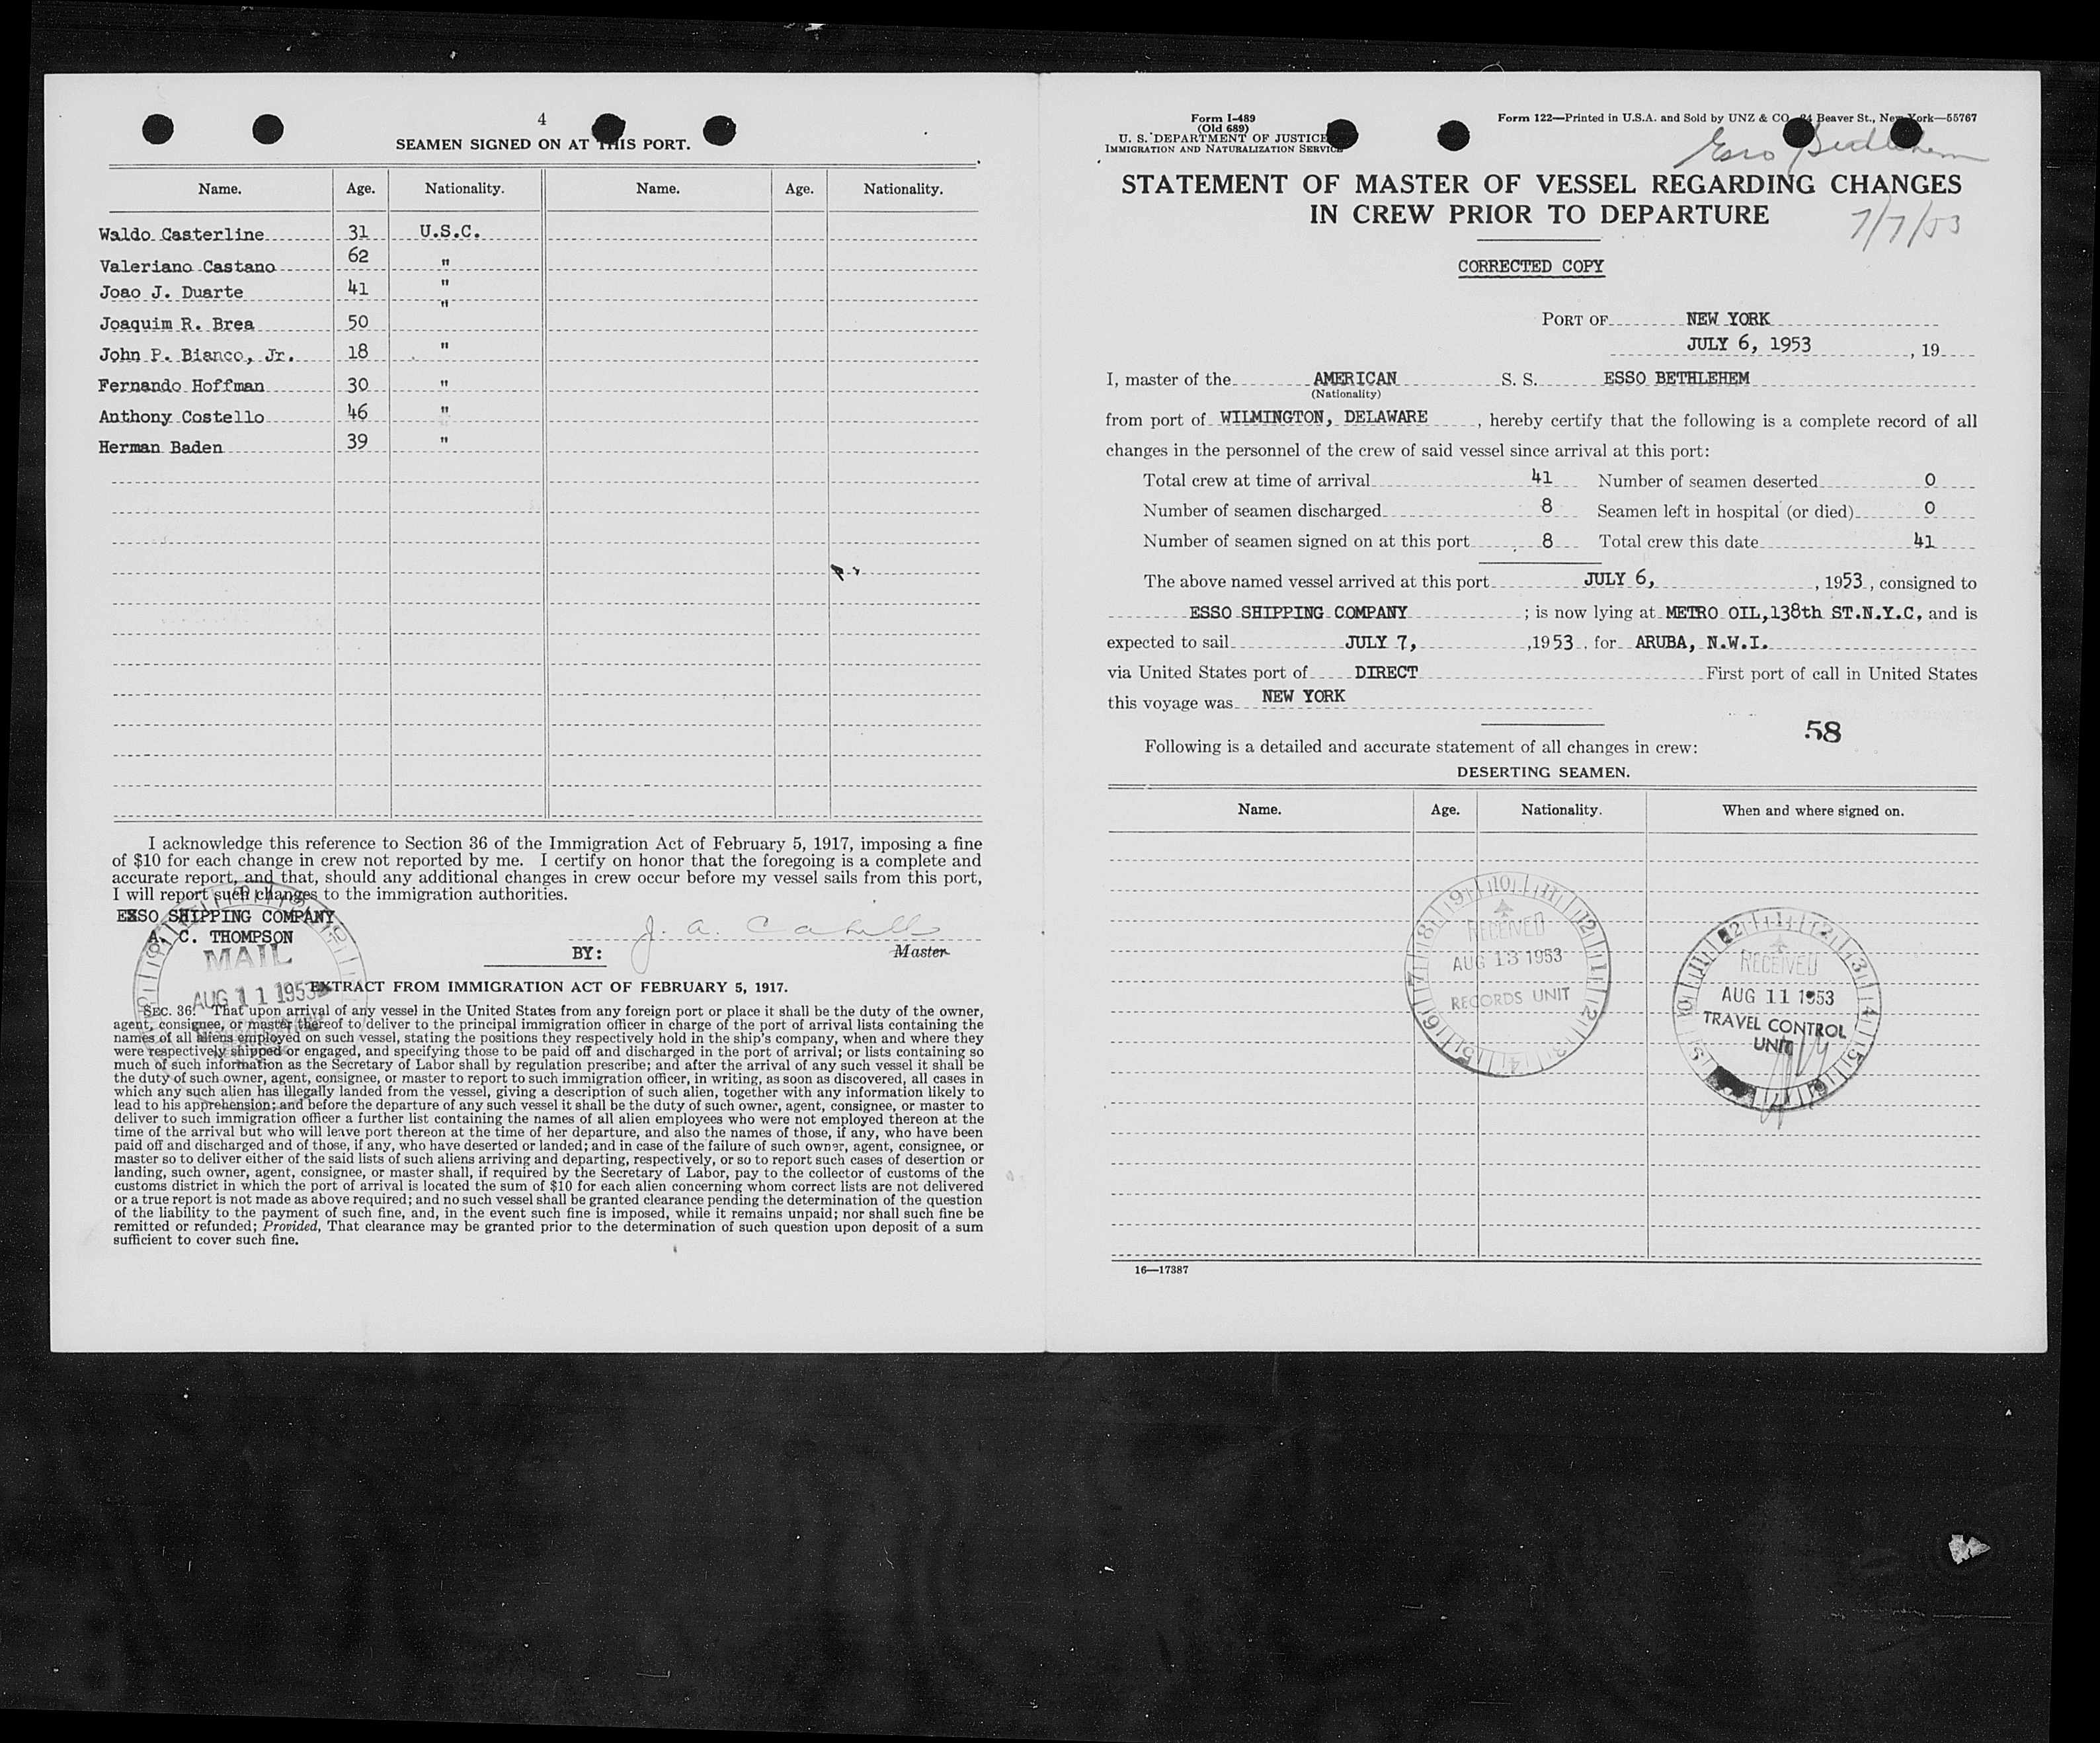 4
SEAMEN SIGNED ON AT THIS PORT.
Name. Age. Nationality. Name. Age. Nationality.
Waldo Casterline 31 U.S.C.
Valeriano Castano 62 "
Joao J. Duarte 41 "
Joaquim R. Brea 50 "
John P. Bianco, Jr. 18 "
Fernando Hoffman 30 "
Anthony Costello 46 "
Herman Baden 39 "
I acknowledge this reference to Section 36 of the Immigration Act of February 5, 1917, imposing a fine
of $10 for each change in crew not reported by me. I certify on honor that the foregoing is a complete and
accurate report, and that, should any additional changes in crew occur before my vessel sails from this port,
I will report such changes to the immigration authorities.
ESSO SHIPPING COMPANY
A. C. THOMPSON
MAIL
AUG 11 1953
BY: J. A. Cahill
Master
EXTRACT FROM IMMIGRATION ACT OF FEBRUARY 5, 1917.
SEC. 36. That upon arrival of any vessel in the United States from any foreign port or place it shall be the duty of the owner,
agent, consignee, or master thereof to deliver to the principal immigration officer in charge of the port of arrival lists containing the
names of all aliens employed on such vessel, stating the positions they respectively hold in the ship's company, when and where they
were respectively shipped or engaged, and specifying those to be paid off and discharged in the port of arrival; or lists containing so
much of such information as the Secretary of Labor shall by regulation prescribe; and after the arrival of any such vessel it shall be
the duty of such owner, agent, consignee, or master to report to such immigration officer, in writing, as soon as discovered, all cases in
which any such alien has illegally landed from the vessel, giving a description of such alien, together with any information likely to
lead to his apprehension; and before the departure of any such vessel it shall be the duty of such owner, agent, consignee, or master to
deliver to such immigration officer a further list containing the names of all alien employees who were not employed thereon at the
time of the arrival but who will leave port thereon at the time of her departure, and also the names of those, if any, who have been
paid off and discharged and of those, if any, who have deserted or landed; and in case of the failure of such owner, agent, consignee, or
master so to deliver either of the said lists of such aliens arriving and departing, respectively, or so to report such cases of desertion or
landing, such owner, agent, consignee, or master shall, if required by the Secretary of Labor, pay to the collector of customs of the
customs district in which the port of arrival is located the sum of $10 for each alien concerning whom correct lists are not delivered
or a true report is not made as above required; and no such vessel shall be granted clearance pending the determination of the question
of the liability to the payment of such fine, and, in the event such fine is imposed, while it remains unpaid; nor shall such fine be
remitted or refunded; Provided, That clearance may be granted prior to the determination of such question upon deposit of a sum
sufficient to cover such fine.
Form I-489
(Old 689)
U. S. DEPARTMENT OF JUSTICE
IMMIGRATION AND NATURALIZATION SERVICE
Form 122—Printed in U.S.A. and Sold by UNZ & CO. 24 Beaver St., New York—55767
Esso Bethlehem
STATEMENT OF MASTER OF VESSEL REGARDING CHANGES
IN CREW PRIOR TO DEPARTURE
7/7/53
CORRECTED COPY
PORT OF NEW YORK
JULY 6, 1953, 19
I, master of the AMERICAN S. S. ESSO BETHLEHEM
(Nationality)
from port of WILMINGTON, DELAWARE, hereby certify that the following is a complete record of all
changes in the personnel of the crew of said vessel since arrival at this port:
Total crew at time of arrival 41 Number of seamen deserted 0
Number of seamen discharged 8 Seamen left in hospital (or died) 0
Number of seamen signed on at this port 8 Total crew this date 41
The above named vessel arrived at this port JULY 6, , 1953, consigned to
ESSO SHIPPING COMPANY ; is now lying at METRO OIL, 138th ST.N.Y.C, and is
expected to sail JULY 7, ,1953, for ARUBA, N.W.I.
via United States port of DIRECT First port of call in United States
this voyage was NEW YORK
58
Following is a detailed and accurate statement of all changes in crew:
DESERTING SEAMEN.
Name. Age. Nationality. When and where signed on.
RECEIVED
AUG 13 1953
RECORDS UNIT
RECEIVED
AUG 11 1953
TRAVEL CONTROL
UNIT
16—17387